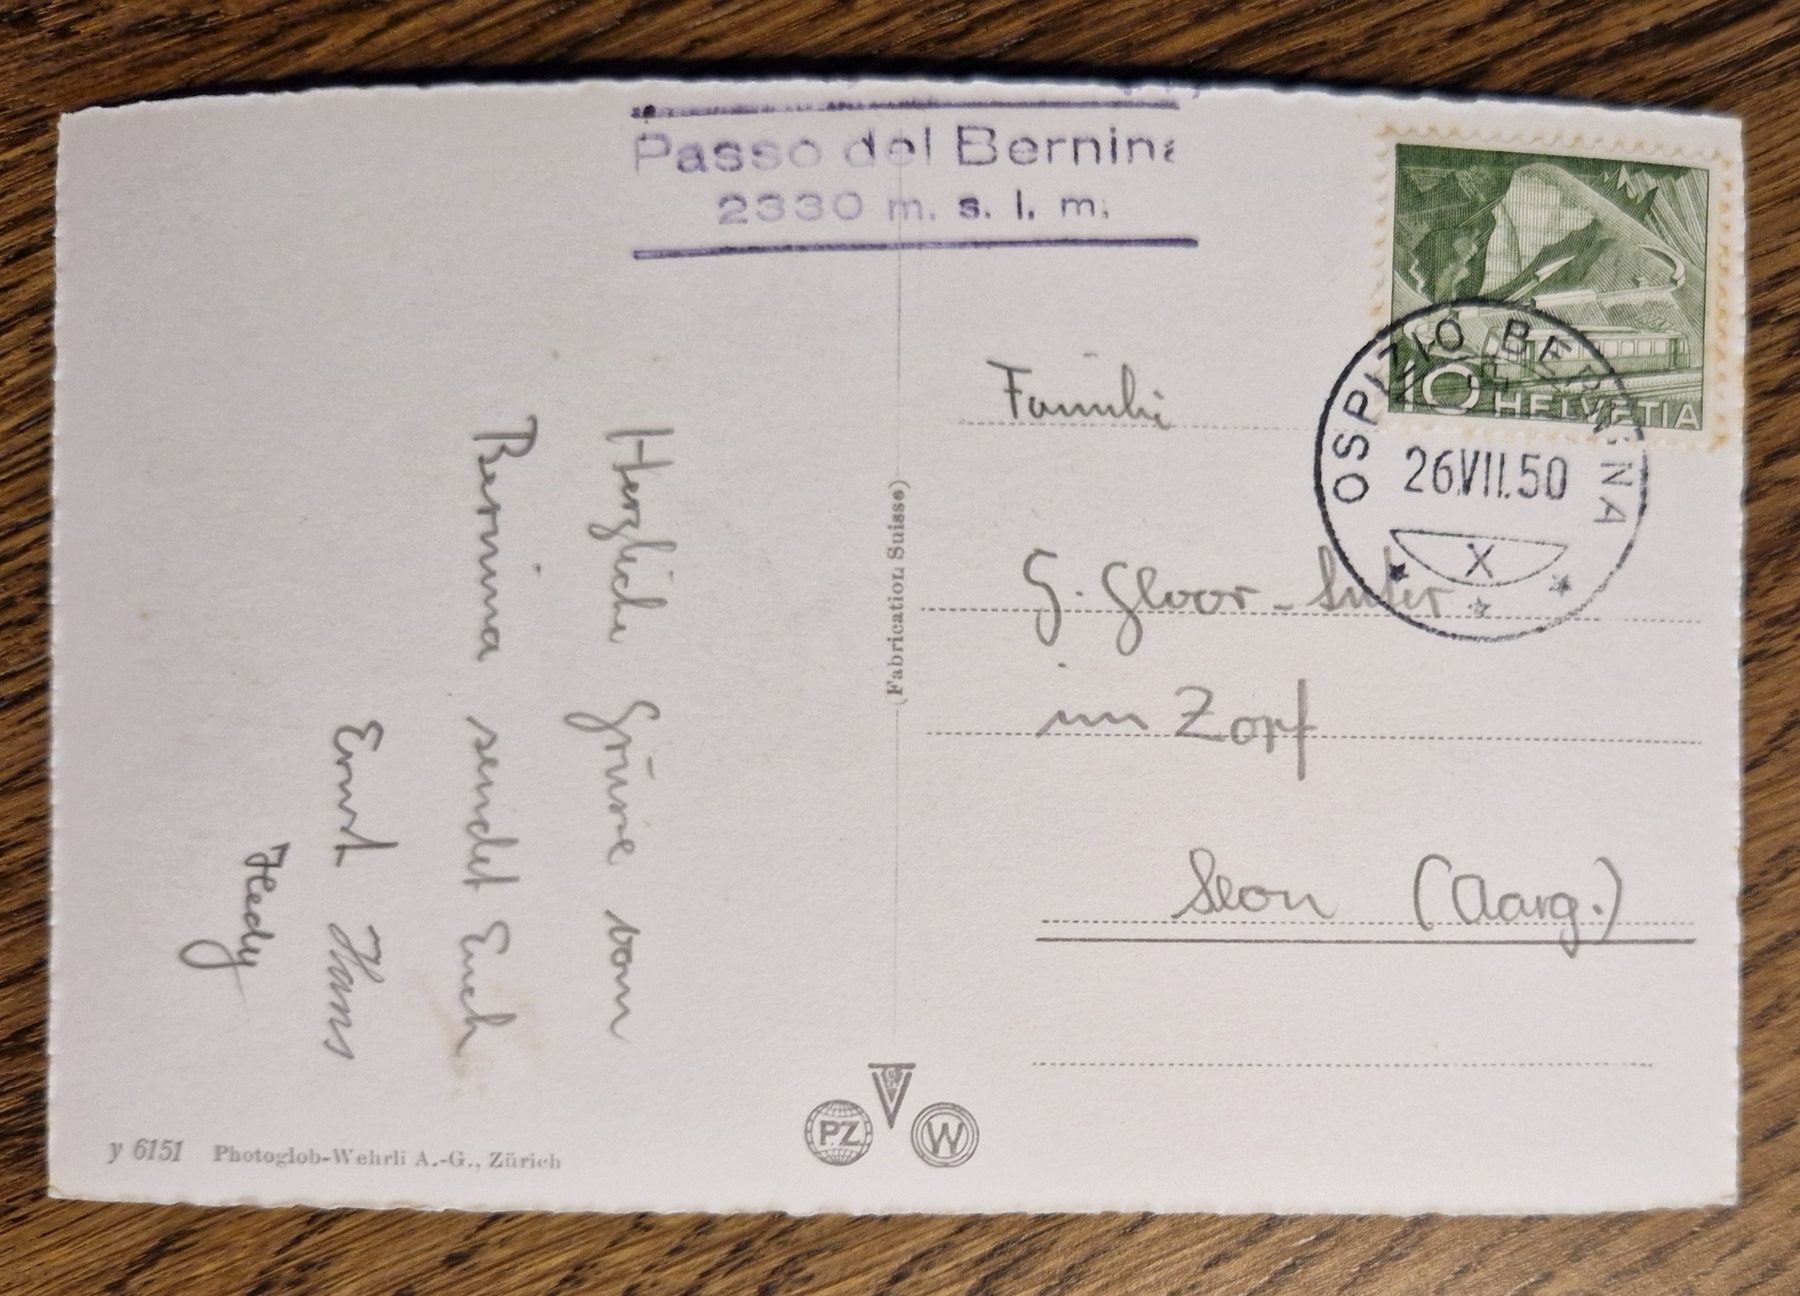 Passo del Bernina
2330 m. s. l. m.
10 HELVETIA
OSPIZIO BERNINA
26.VII.50
X
Herzliche Grüsse vom
Bernina sendet Euch
Ernst Hans
Hedy
(Fabrication Suisse)
Famili
G. Gloor-Suter
im Zorf
Seon (Aarg.)
y 6151 Photoglob-Wehrli A.-G., Zürich
PZ
W